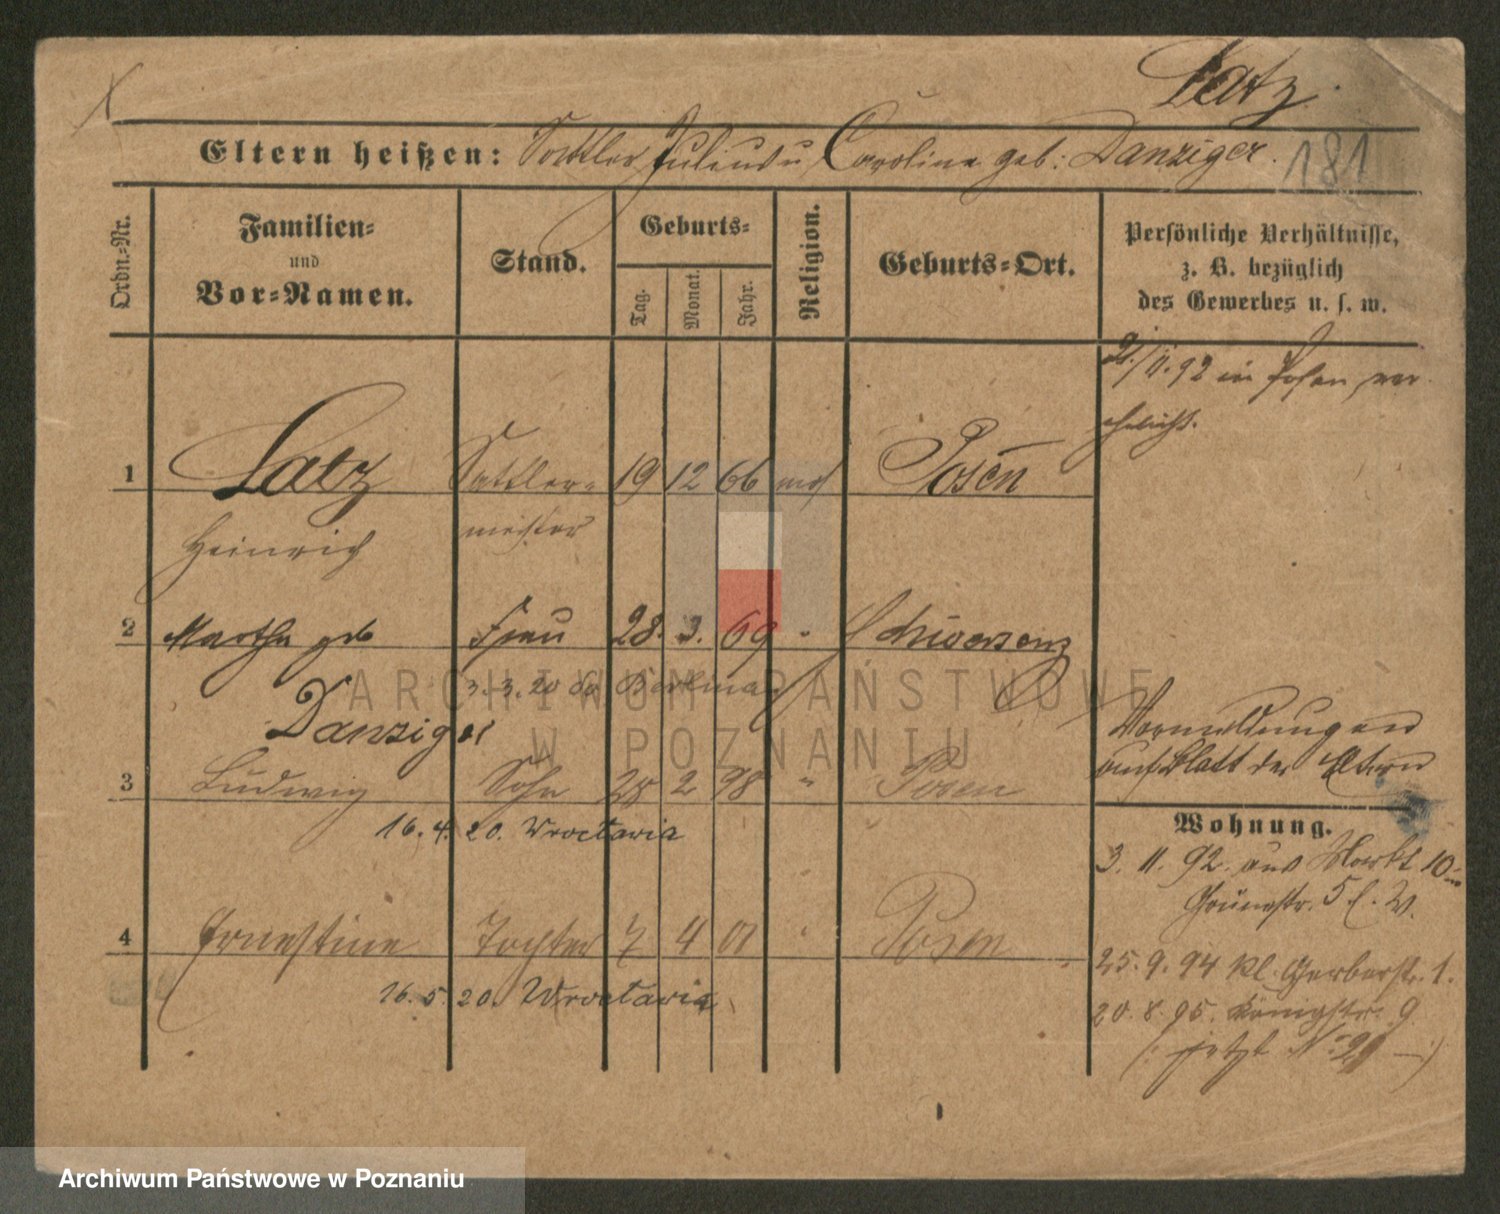 Latz.
Eltern heißen: Sattler Julius u Caroline geb: Danziger.
181
Ordn.=Nr.
Familien=
und
Vor=Namen.
Stand.
Geburts=
Tag.
Monat.
Jahr.
Religion.
Geburts=Ort.
Persönliche Verhältnisse,
z. B. bezüglich
des Gewerbes u. s. w.
2/11.92 in Posen ver
ehelicht.
1 Latz Sattler= 19 12 66 mos Posen
Heinrich meister
2 Martha geb Frau 28. 3. 69 " Schwersenz
3.3.20
Danziger
Vermeldungen
auf Blatt der Eltern
3 Ludwig Sohn 28 2 98 " Posen
16. 4. 20. Wrocławia
Wohnung.
3. 11. 92. aus Markt 10 in
Grünestr. 5
4 Ernestine Tochter 7 4 01 " Posen
16. 5. 20. Wrocławia
25. 9. 94 Kl. Gerberstr. 1.
20. 8. 95. Königstr. 9
(: jetzt No 21 :)
ARCHIWUM PAŃSTWOWE
W POZNANIU
Archiwum Państwowe w Poznaniu